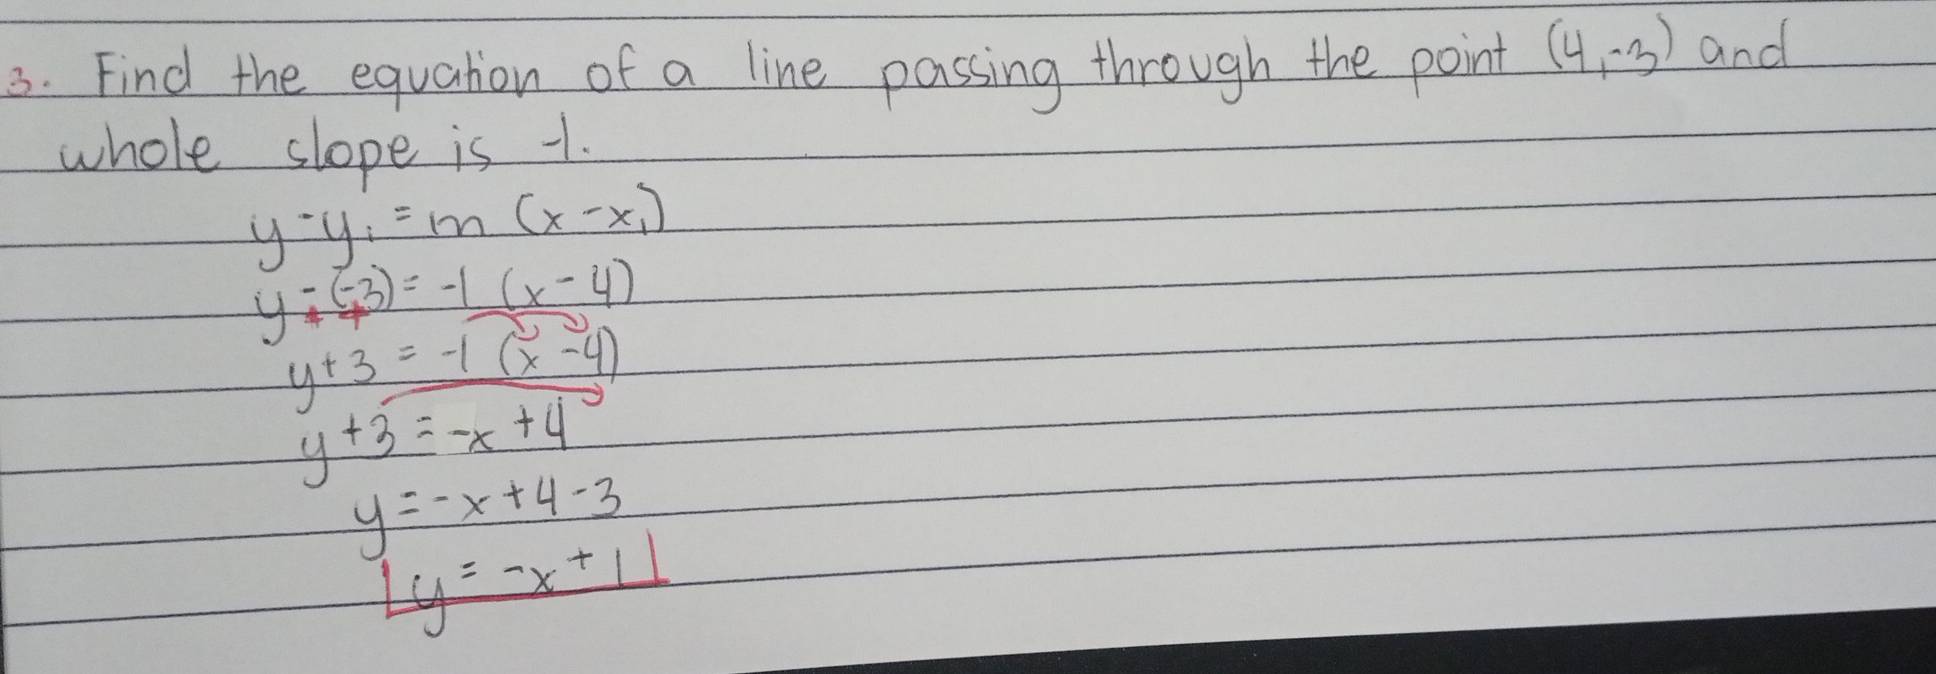 3. Find the equation of a line passing through the point (4,-3) and
whole slope is -1.
y-y₁ = m (x-x₁)
y-(-3) = -1 (x-4)
y+3 = -1 (x-4)
y+3 = -x+4
y = -x+4-3
y = -x+1